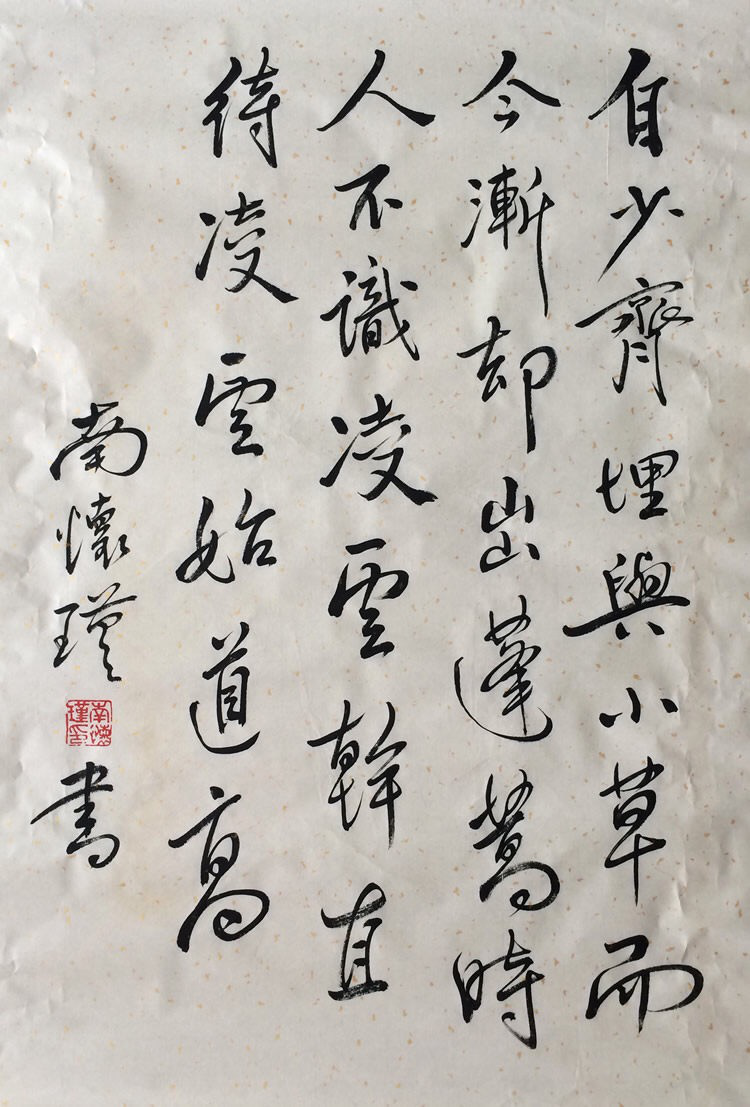 自少齊埋與小草而
今漸却出蓬蒿時
人不識凌雲幹直
待凌雲始道高
南懷瑾書
南懷瑾印